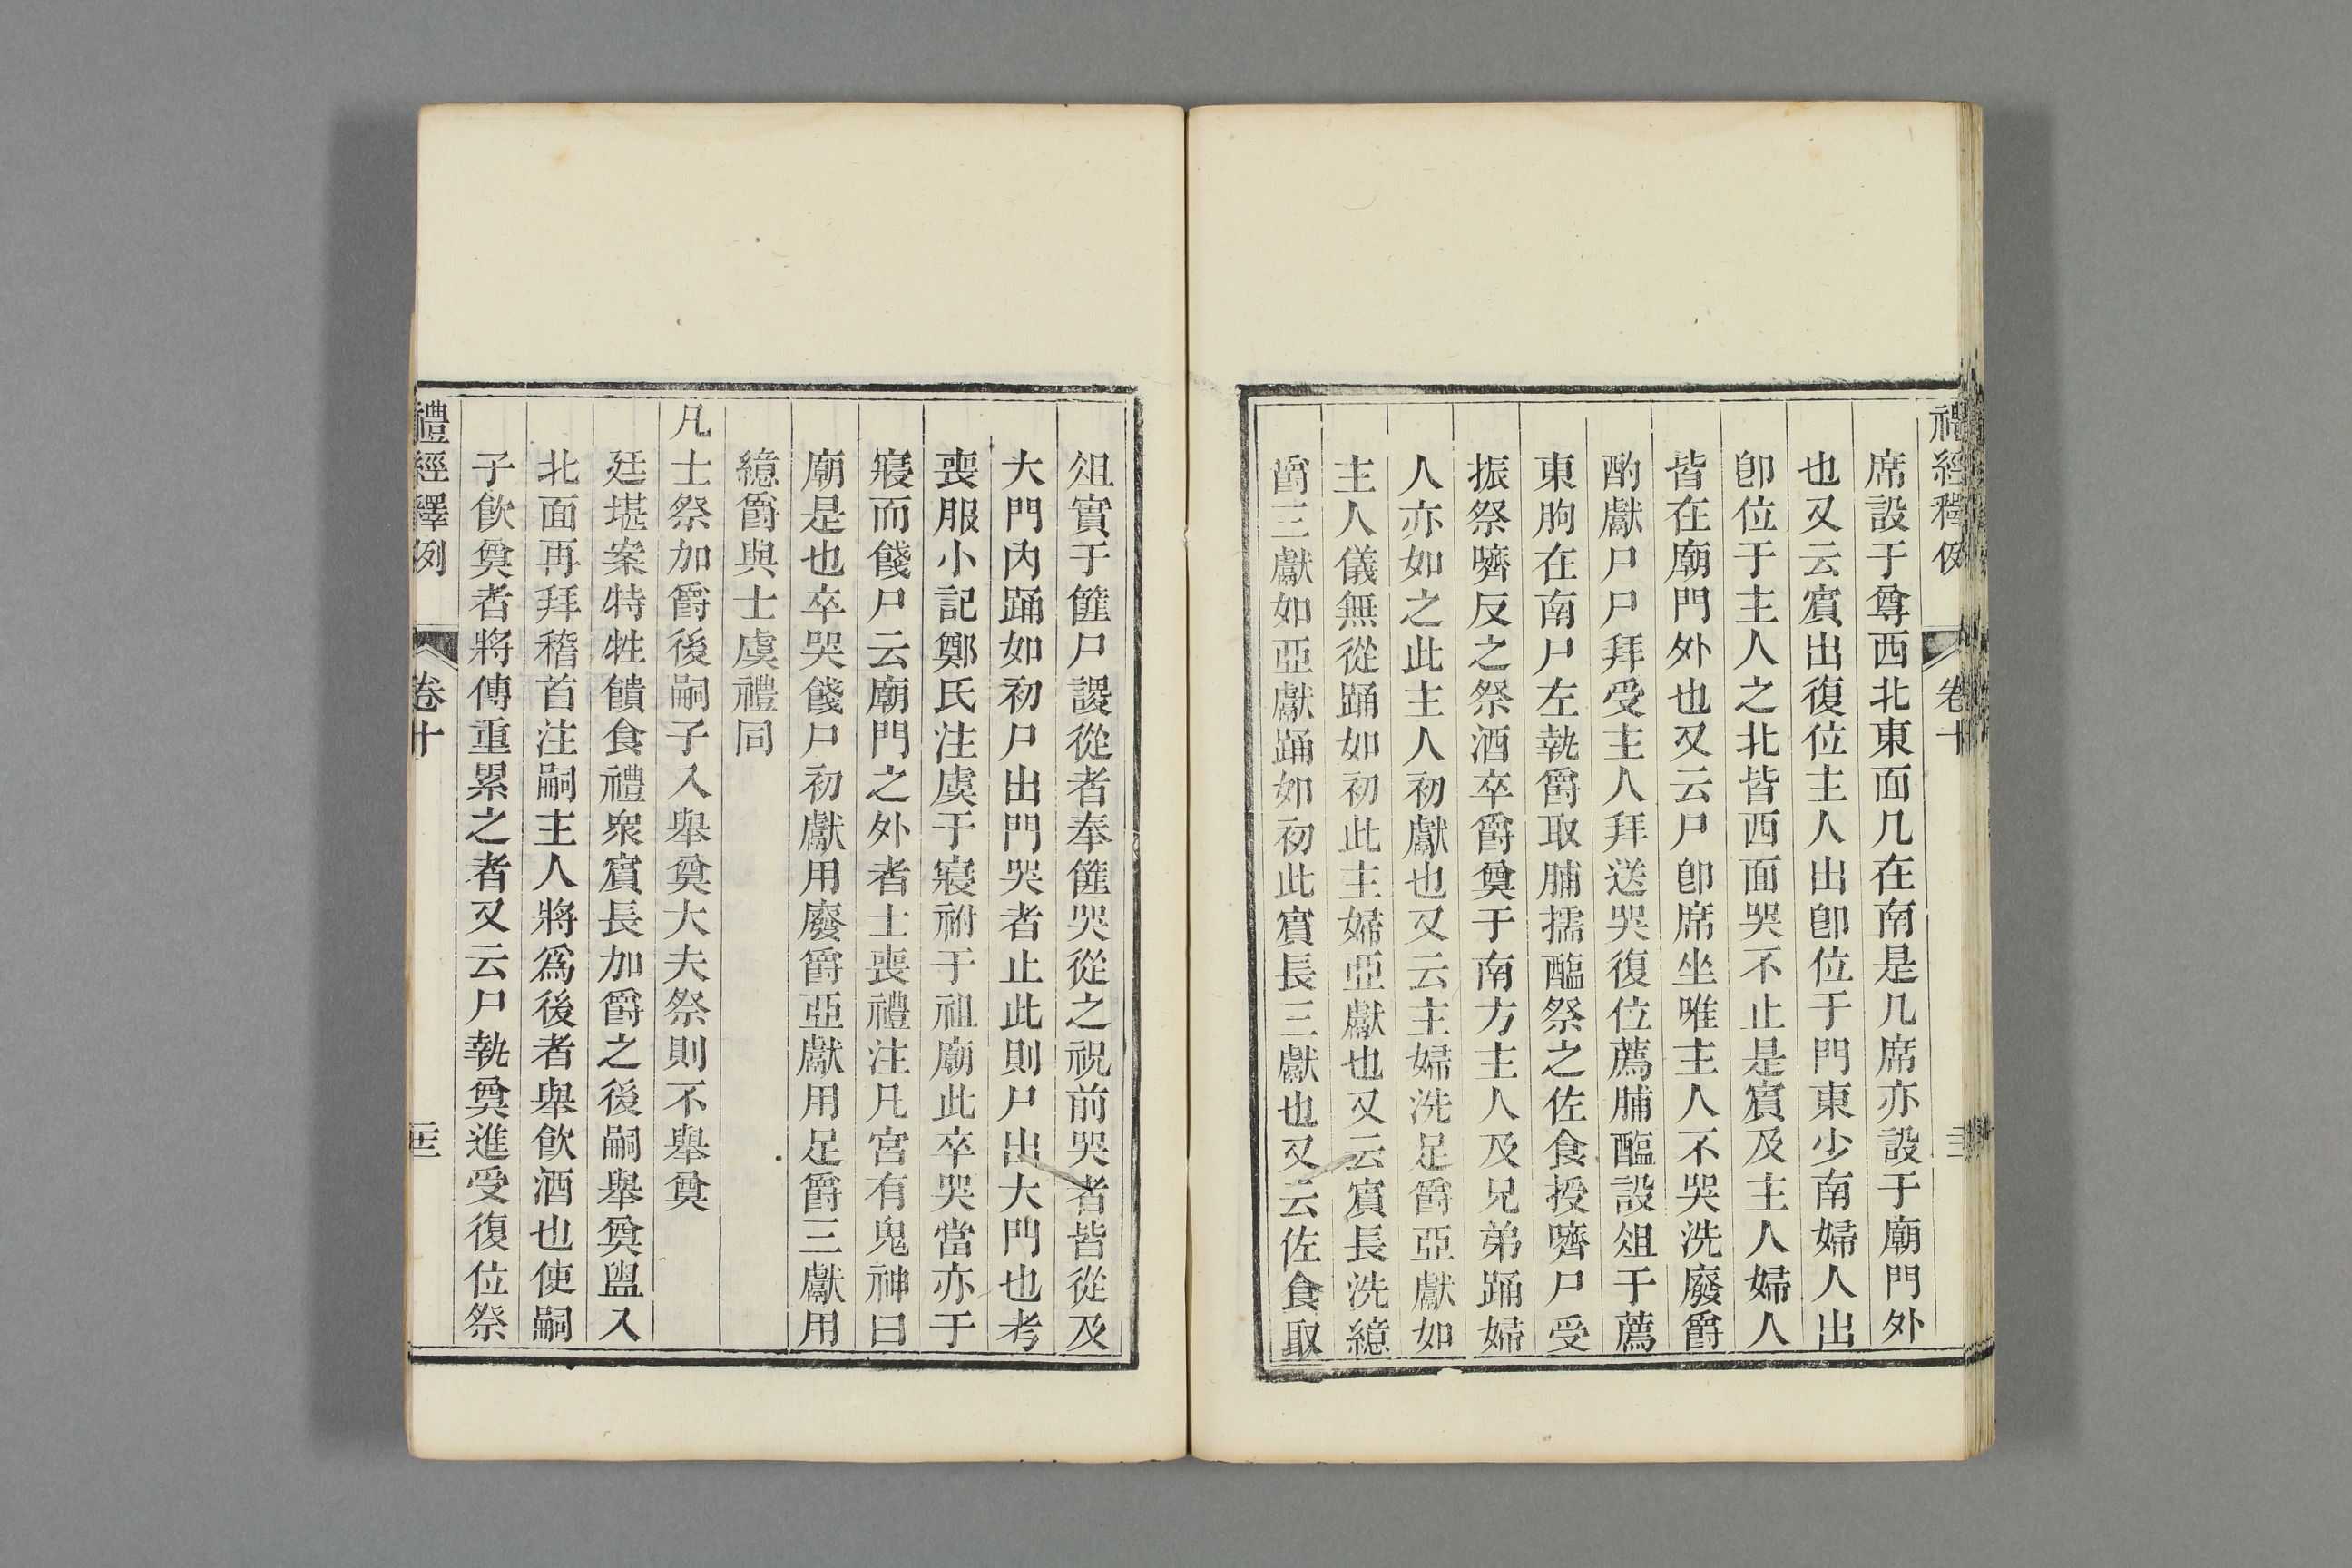 禮經釋例 卷十
席設于尊西北東面几在南是几席亦設于廟門外
也又云賓出復位主人出卽位于門東少南婦人出
卽位于主人之北皆西面哭不止是賓及主人婦人
皆在廟門外也又云尸卽席坐唯主人不哭洗廢爵
酌獻尸尸拜受主人拜送哭復位薦脯醢設俎于薦
東朐在南尸左執爵取脯擩醢祭之佐食授嚌尸受
振祭嚌反之祭酒卒爵奠于南方主人及兄弟踊婦
人亦如之此主人初獻也又云主婦洗足爵亞獻如
主人儀無從踊如初此主婦亞獻也又云賓長洗繶
爵三獻如亞獻踊如初此賓長三獻也又云佐食取
俎實于篚尸謖從者奉篚哭從之祝前哭者皆從及
大門內踊如初尸出門哭者止此則尸出大門也考
喪服小記鄭氏注虞于寢祔于祖廟此卒哭當亦于
寢而餞尸云廟門之外者士喪禮注凡宮有鬼神曰
廟是也卒哭餞尸初獻用廢爵亞獻用足爵三獻用
繶爵與士虞禮同
凡士祭加爵後嗣子入舉奠大夫祭則不舉奠
廷堪案特牲饋食禮衆賓長加爵之後嗣舉奠盥入
北面再拜稽首注嗣主人將爲後者舉飮酒也使嗣
子飮奠者將傳重累之者又云尸執奠進受復位祭
禮經釋例 卷十